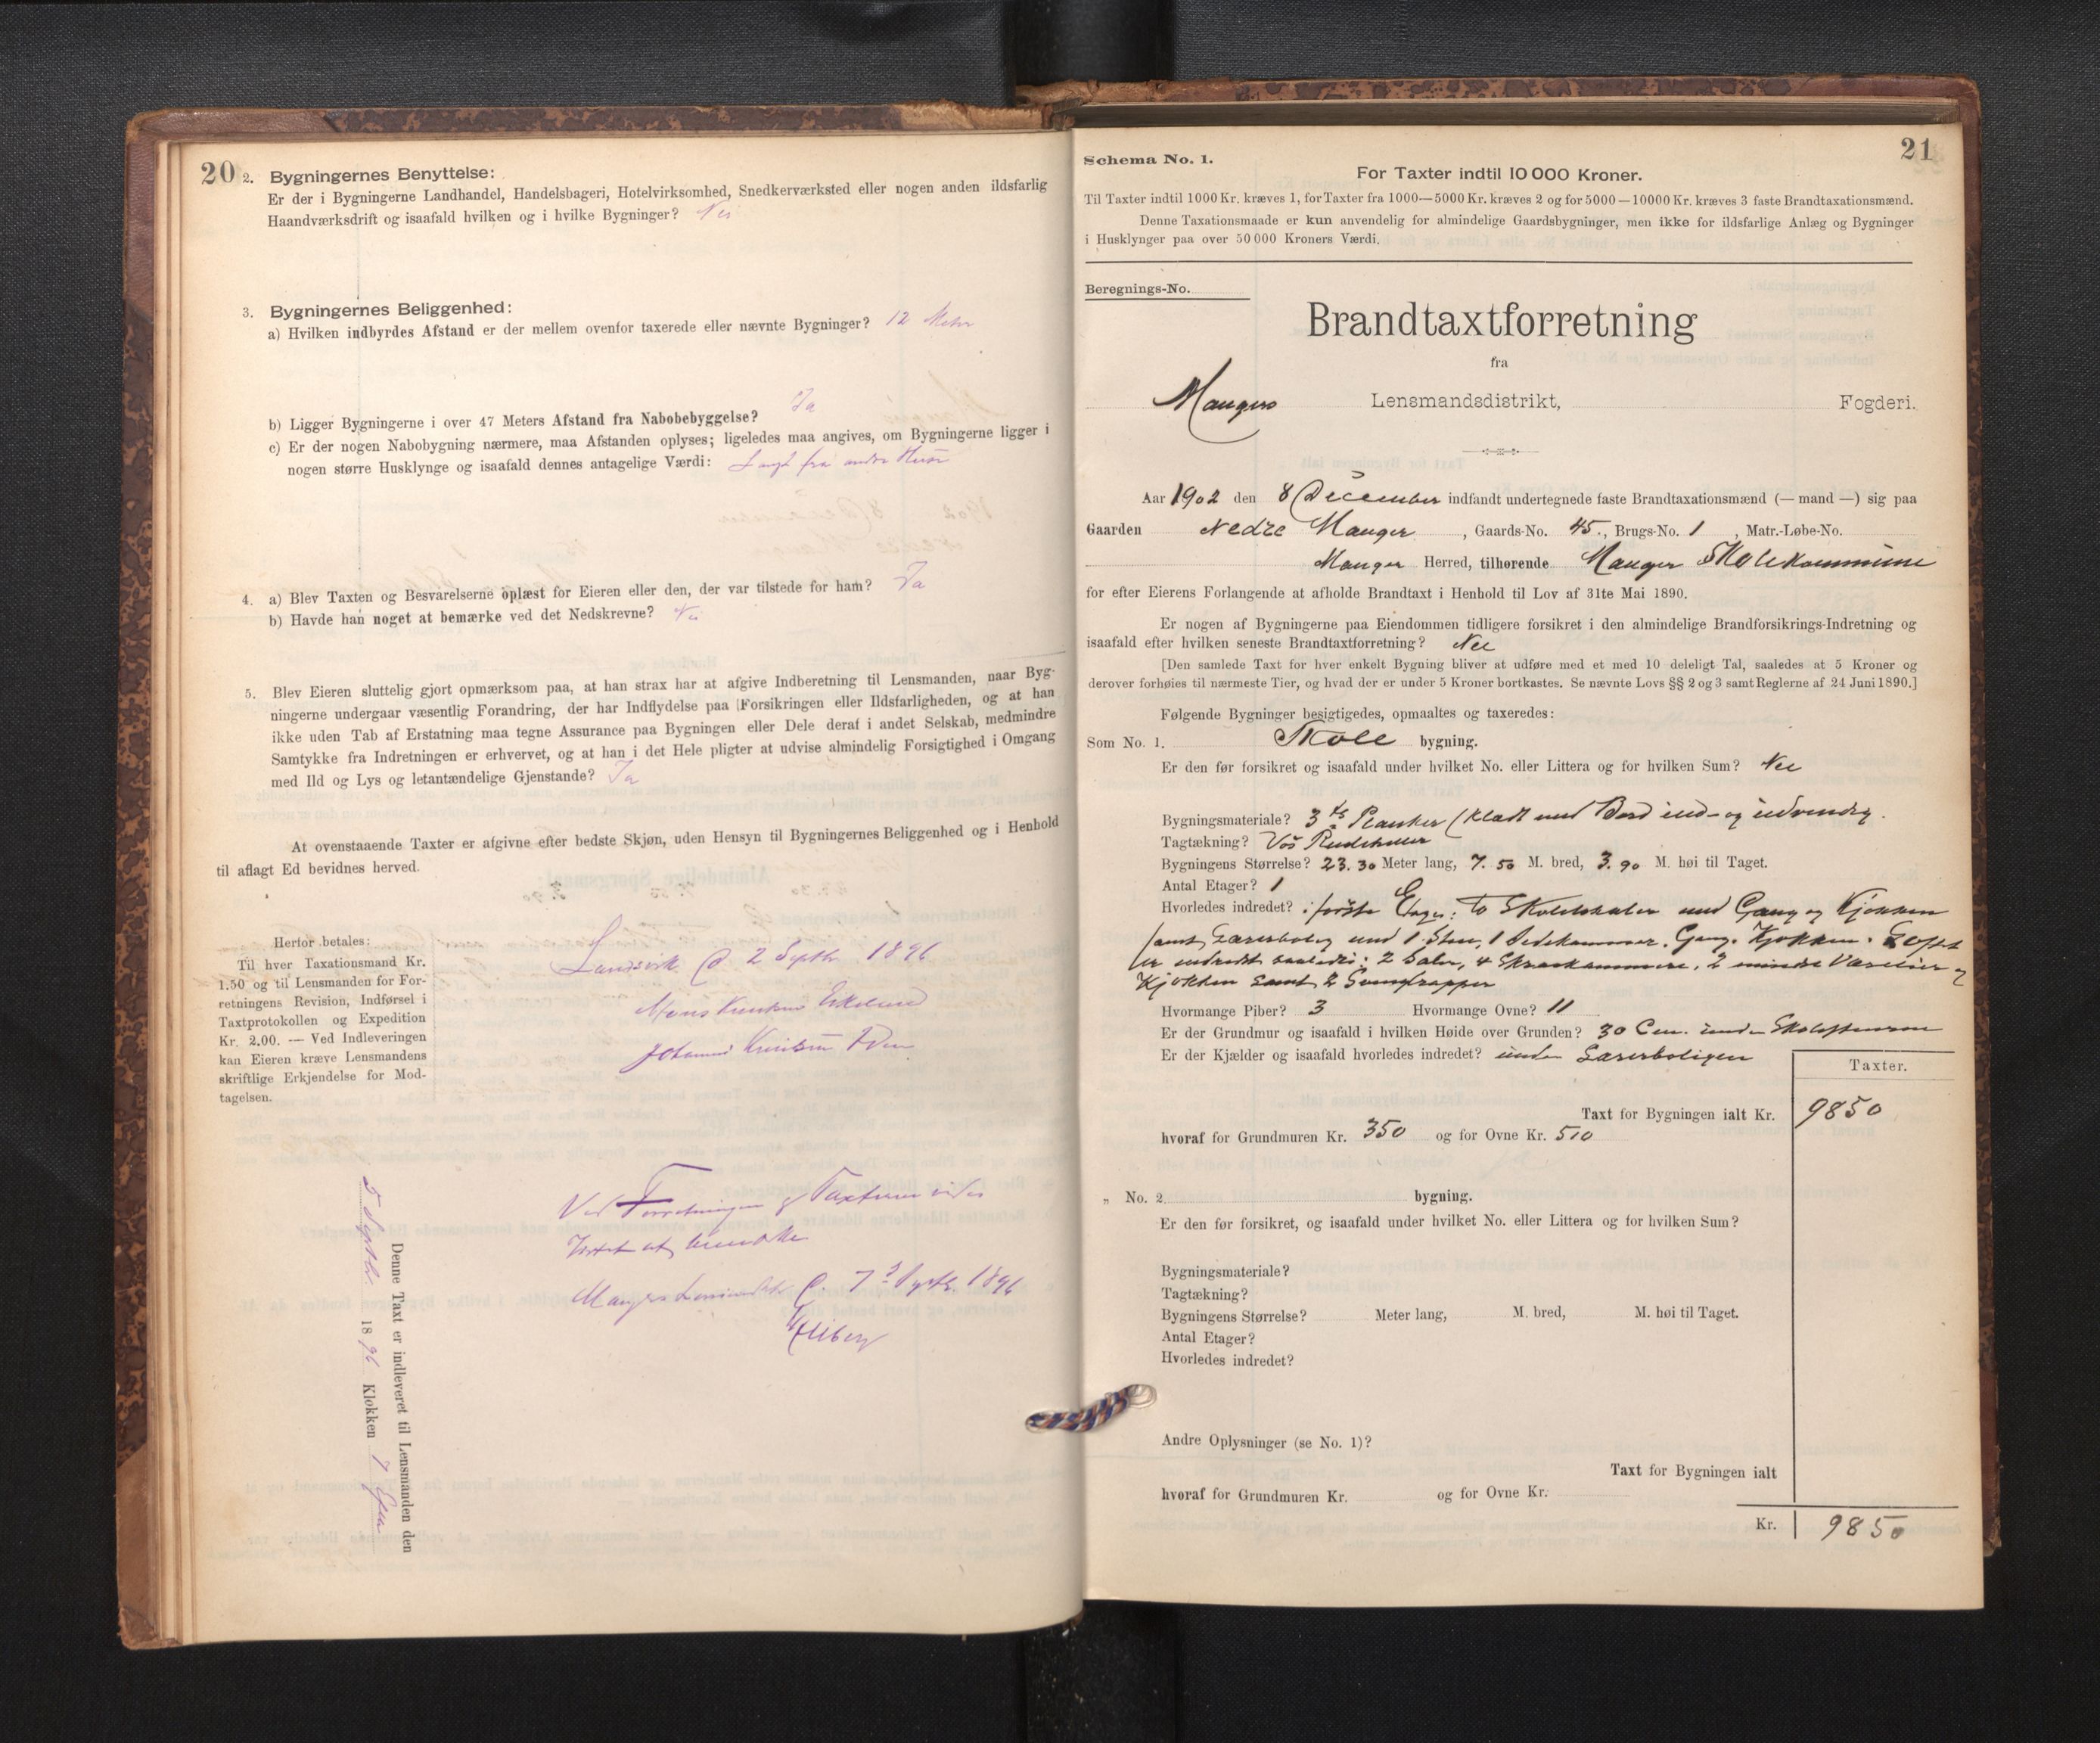 20
2. Bygningernes Benyttelse:
Er der i Bygningerne Landhandel, Handelsbageri, Hotelvirksomhed, Snedkerværksted eller nogen anden ildsfarlig
Haandværksdrift og isaafald hvilken og i hvilke Bygninger? Nei
3. Bygningernes Beliggenhed:
a) Hvilken indbyrdes Afstand er der mellem ovenfor taxerede eller nævnte Bygninger? 12 Meter
b) Ligger Bygningerne i over 47 Meters Afstand fra Nabobebyggelse? Ja
c) Er der nogen Nabobygning nærmere, maa Afstanden oplyses; ligeledes maa angives, om Bygningerne ligger i
nogen større Husklynge og isaafald dennes antagelige Værdi: Langt fra andre Huse
4. a) Blev Taxten og Besvarelserne oplæst for Eieren eller den, der var tilstede for ham? Ja
b) Havde han noget at bemærke ved det Nedskrevne? Nei
5. Blev Eieren sluttelig gjort opmærksom paa, at han strax har at afgive Indberetning til Lensmanden, naar Byg-
ningerne undergaar væsentlig Forandring, der har Indflydelse paa Forsikringen eller Ildsfarligheden, og at han
ikke uden Tab af Erstatning maa tegne Assurance paa Bygningen eller Dele deraf i andet Selskab, medmindre
Samtykke fra Indretningen er erhvervet, og at han i det Hele pligter at udvise almindelig Forsigtighed i Omgang
med Ild og Lys og letantændelige Gjenstande? Ja
At ovenstaaende Taxter er afgivne efter bedste Skjøn, uden Hensyn til Bygningernes Beliggenhed og i Henhold
til aflagt Ed bevidnes herved.
Herfor betales:
Til hver Taxationsmand Kr.
1.50 og til Lensmanden for For-
retningens Revision, Indførsel i
Taxtprotokollen og Expedition
Kr. 2.00. — Ved Indleveringen
kan Eieren kræve Lensmandens
skriftlige Erkjendelse for Mod-
tagelsen.
2 Septbr 1896
Mons Knudsen
Johannes Knudsen
Ved Forretningen og Taxterne vides
Intet at bemærke
Manger 7 Septbr. 1896
Denne Taxt er indleveret til Lensmanden den
5 Septbr. 1896 Klokken 7 Efm
21
Schema No. 1.
For Taxter indtil 10 000 Kroner.
Til Taxter indtil 1000 Kr. kræves 1, for Taxter fra 1000—5000 Kr. kræves 2 og for 5000—10000 Kr. kræves 3 faste Brandtaxationsmænd.
Denne Taxationsmaade er kun anvendelig for almindelige Gaardsbygninger, men ikke for ildsfarlige Anlæg og Bygninger
i Husklynger paa over 50 000 Kroners Værdi.
Beregnings-No.
Brandtaxtforretning
fra
Mangers Lensmandsdistrikt, Fogderi.
Aar 1902 den 8 December indfandt undertegnede faste Brandtaxationsmænd (— mand —) sig paa
Gaarden Nedre Manger, Gaards-No. 45., Brugs-No. 1, Matr.-Løbe-No.
Manger Herred, tilhørende Manger Skolekommune
for efter Eierens Forlangende at afholde Brandtaxt i Henhold til Lov af 31te Mai 1890.
Er nogen af Bygningerne paa Eiendommen tidligere forsikret i den almindelige Brandforsikrings-Indretning og
isaafald efter hvilken seneste Brandtaxtforretning? Nei
[Den samlede Taxt for hver enkelt Bygning bliver at udføre med et med 10 deleligt Tal, saaledes at 5 Kroner og
derover forhøies til nærmeste Tier, og hvad der er under 5 Kroner bortkastes. Se nævnte Lovs §§ 2 og 3 samt Reglerne af 24 Juni 1890.]
Følgende Bygninger besigtigedes, opmaaltes og taxeredes:
Som No. 1. Skole bygning.
Er den før forsikret og isaafald under hvilket No. eller Littera og for hvilken Sum? Nei
Bygningsmateriale? 3 ts Planker klædt med Bord ind- og udvendig.
Tagtækning? Vos
Bygningens Størrelse? 23.30 Meter lang, 7.50 M. bred, 3.90 M. høi til Taget.
Antal Etager? 1
Hvorledes indredet? i første Etage: to Skolelokaler med Gang og Kjøkken
samt Lærerbolig med 1 Stue, 1 Sidekammer, Gang, Kjøkken. Loftet
er indredet saaledes: 2 Saler, 4 Skraakammere, 2 mindre Værelser og
Kjøkken samt 2
Hvormange Piber? 3 Hvormange Ovne? 11
Er der Grundmur og isaafald i hvilken Høide over Grunden? 30 Cm. under
Er der Kjælder og isaafald hvorledes indredet? under Lærerboligen
Taxter.
Taxt for Bygningen ialt Kr. 9850
hvoraf for Grundmuren Kr. 350 og for Ovne Kr. 510
„ No. 2. bygning.
Er den før forsikret, og isaafald under hvilket No. eller Littera og for hvilken Sum?
Bygningsmateriale?
Tagtækning?
Bygningens Størrelse? Meter lang, M. bred, M. høi til Taget.
Antal Etager?
Hvorledes indredet?
Andre Oplysninger (se No. 1)?
Taxt for Bygningen ialt
hvoraf for Grundmuren Kr. og for Ovne Kr.
Kr. 9850